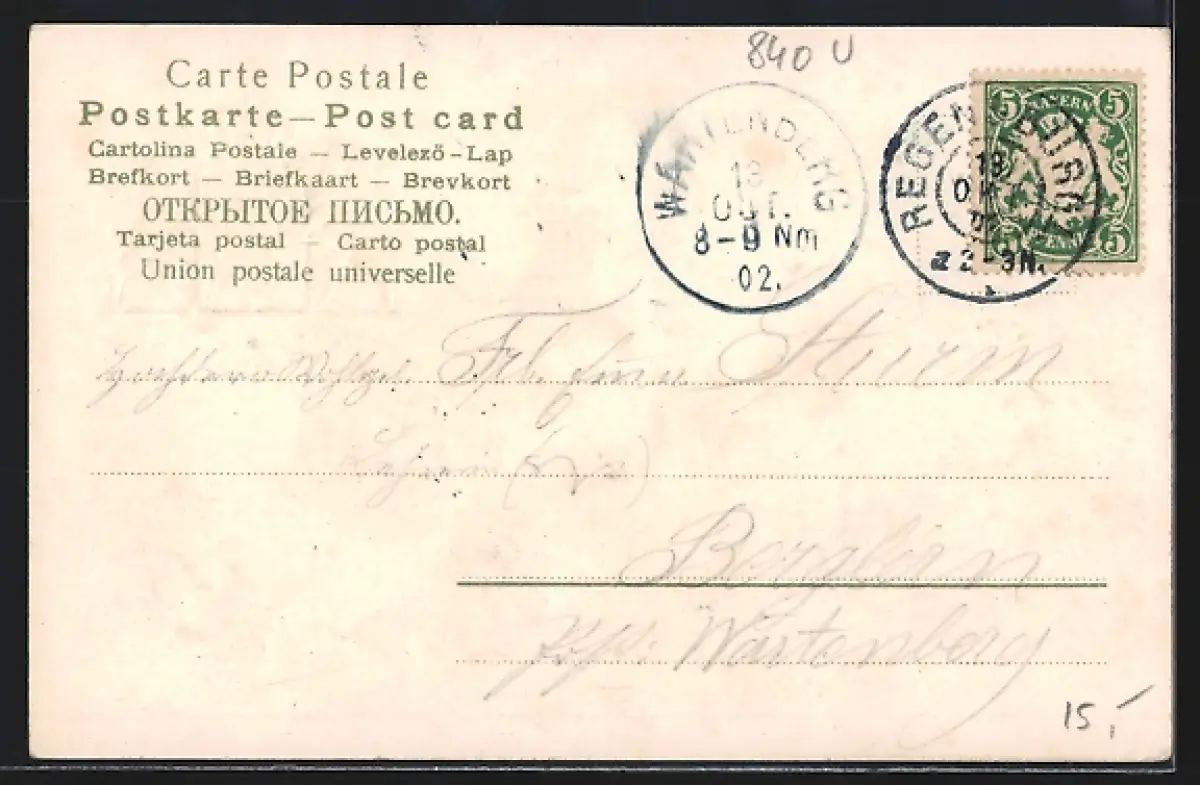 840 U
Carte Postale
Postkarte—Post card
Cartolina Postale — Levelező-Lap
Brefkort — Briefkaart — Brevkort
ОТКРЫТОЕ ПИСЬМО.
Tarjeta postal — Carto postal
Union postale universelle
WARTENBERG
18
OCT.
8-9 Nm
02.
REGENSBURG
18
2-3N.
BAYERN
5 5
5 5
PFENNIG
Frl. Sturm
Berglern
Wartenberg
15,-